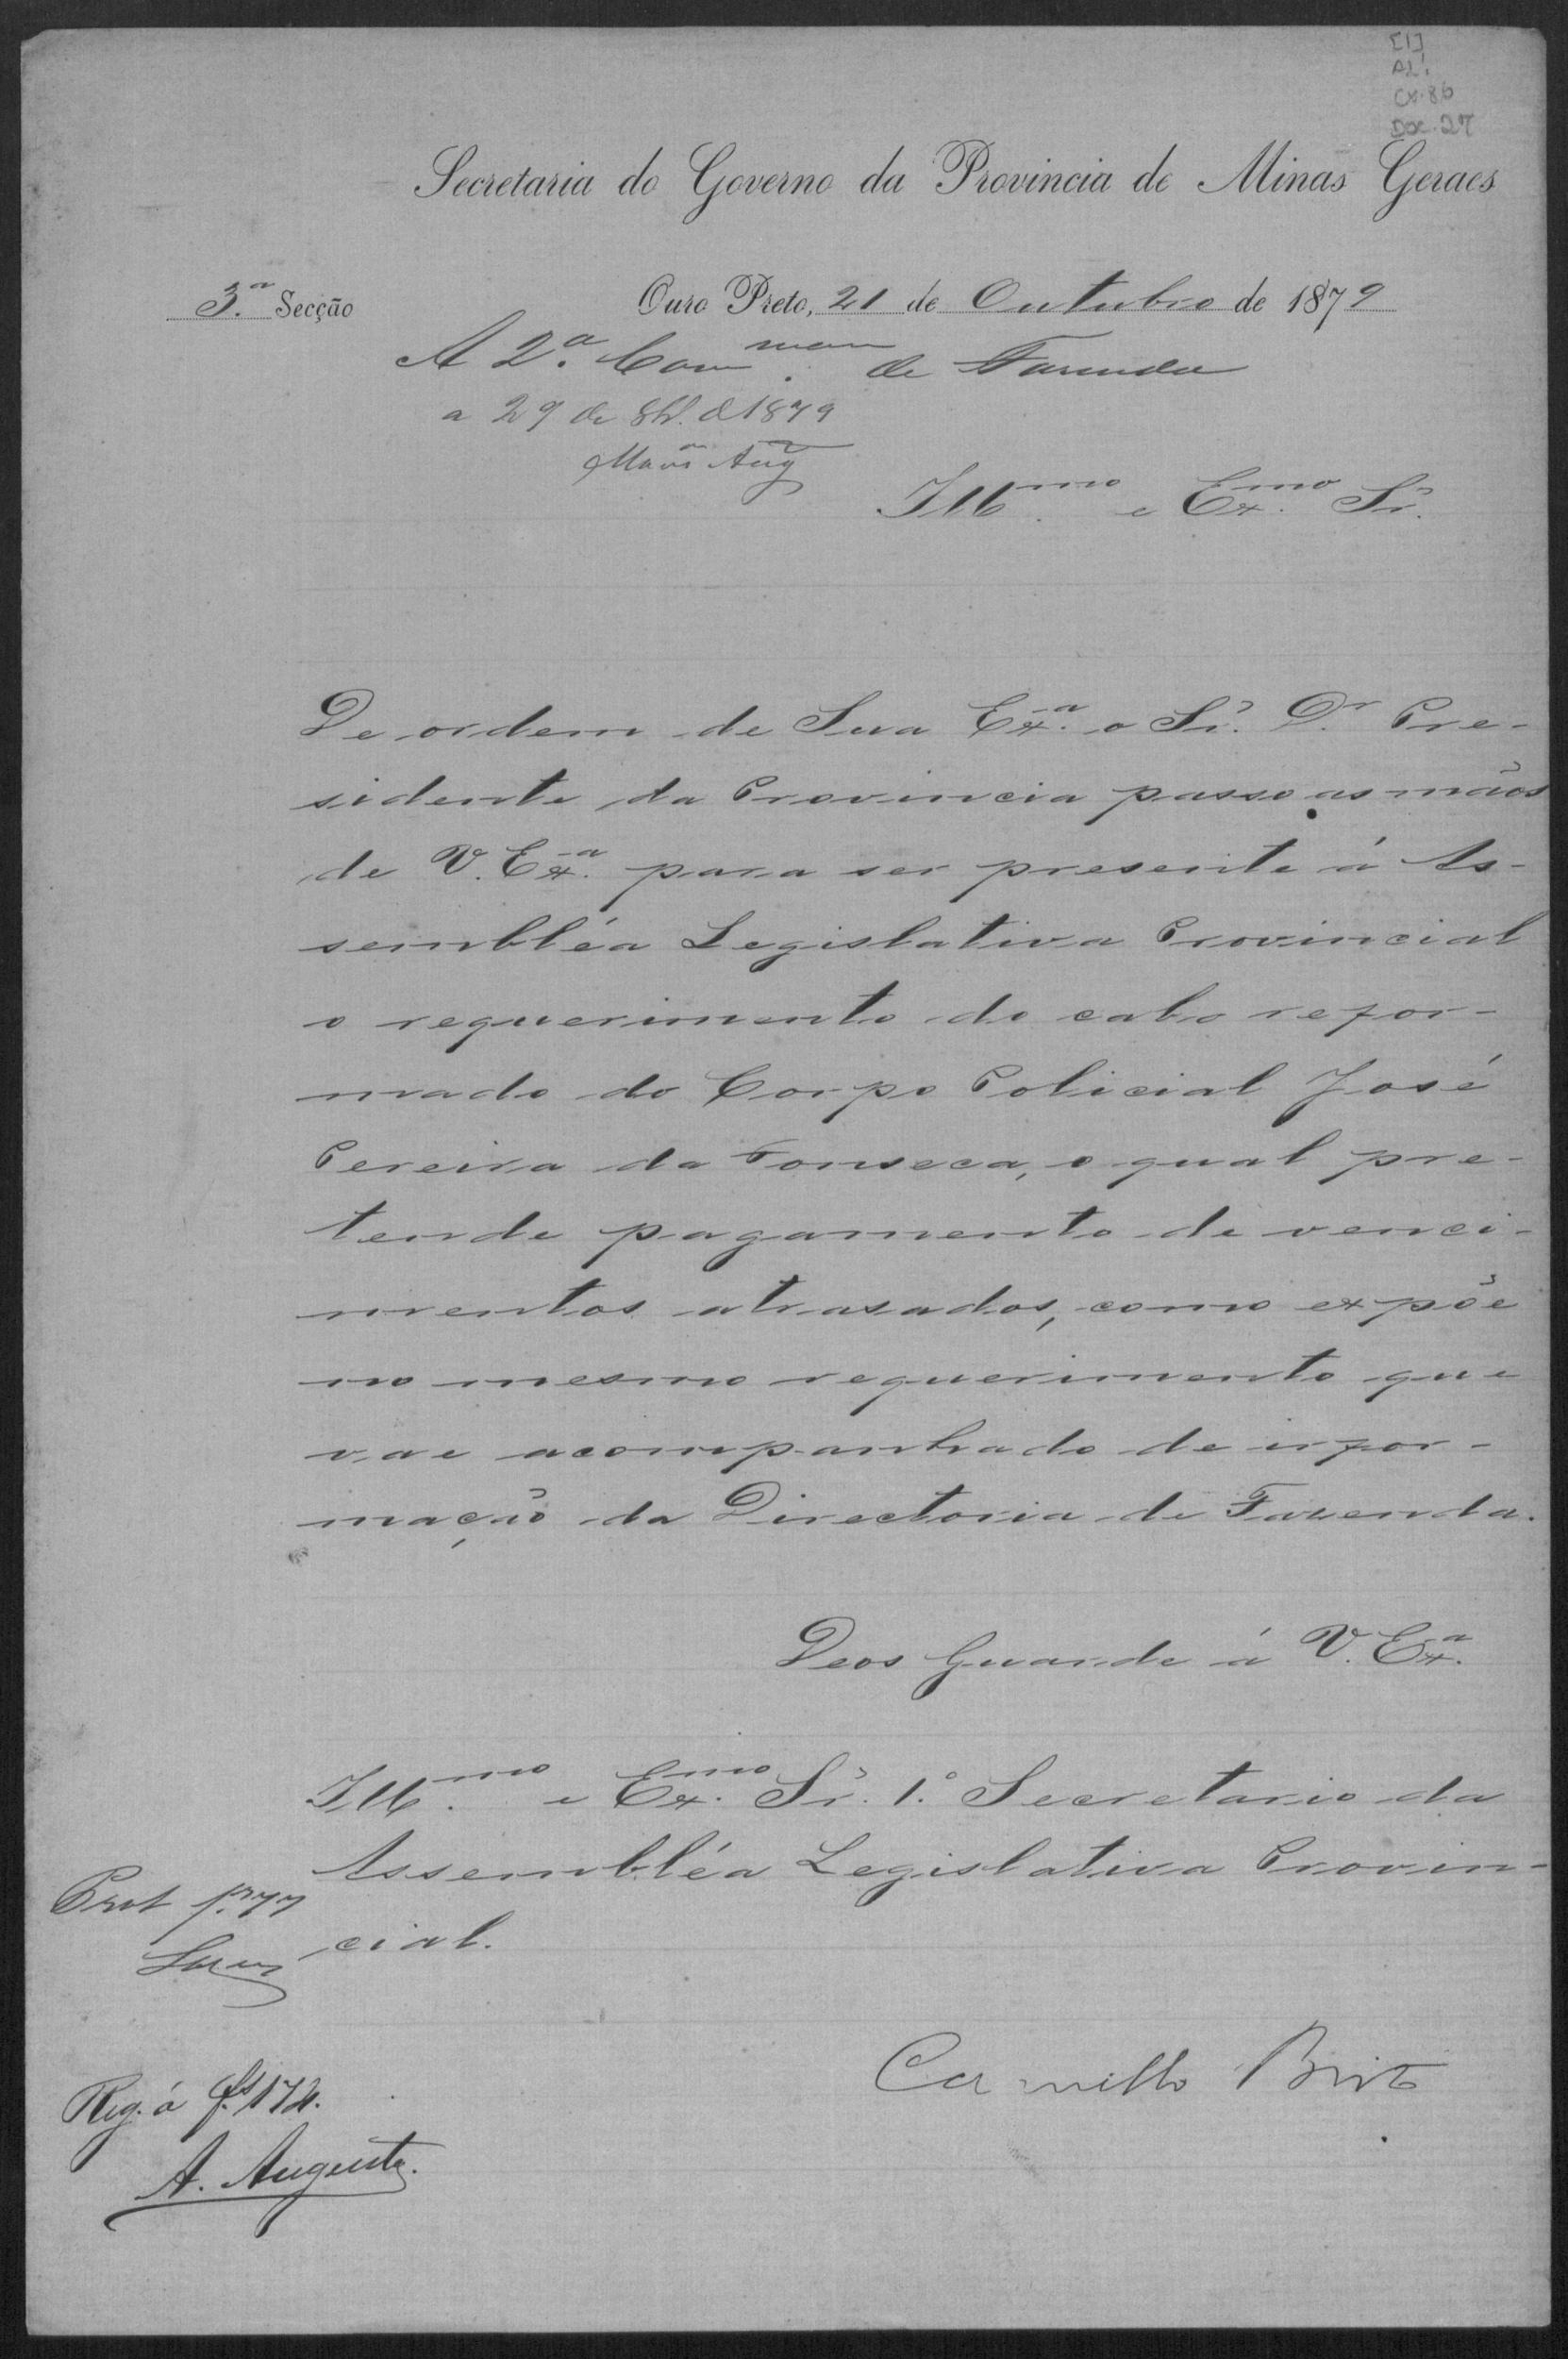 [1]
AL1
Cx. 86
Doc. 27
Secretaria do Governo da Provincia de Minas Geraes
3.ª Secção
Ouro Preto, 21 de Outubro de 1879
A 2.ª Com.mam de Fasenda
a 29 de 8br. d 1879
Illmo. e Ex.mo Sr.
De ordem de Sua Ex.ª o Sr. Dr. Pre-
sidente da Provincia passo as mãos
de V. Ex.ª para ser presente á As-
sembléa Legislativa Provincial
o requerimento do cabo refor-
mado do Corpo Policial José
Pereira da Fonseca, o qual pre-
tende pagamento de venci-
mentos atrasados, como expõe
no mesmo requerimento que
vae acompanhado de infor-
mação da Directoria de Fazenda.
Deos Guarde á V. Ex.ª
Illmo. e Ex.mo Sr. 1.º Secretario da
Assembléa Legislativa Provin-
cial.
Prot f. 77
Camillo Brito
Reg. á fls 174.
A. Augusto.